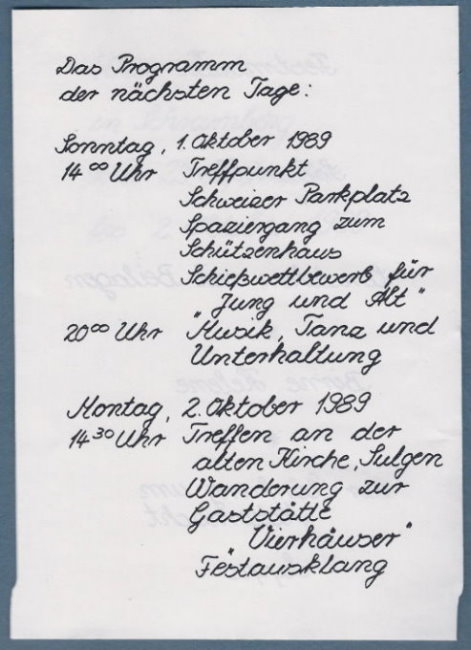 Das Programm
der nächsten Tage:
Sonntag, 1. Oktober 1989
14⁰⁰ Uhr Treffpunkt
Schweizer Parkplatz
Spaziergang zum
Schützenhaus
Schießwettbewerb für
Jung und Alt"
20⁰⁰ Uhr "Musik, Tanz und
Unterhaltung
Montag, 2. Oktober 1989
14³⁰ Uhr Treffen an der
alten Kirche, Sulgen
Wanderung zur
Gaststätte
Vierhäuser"
"Festausklang